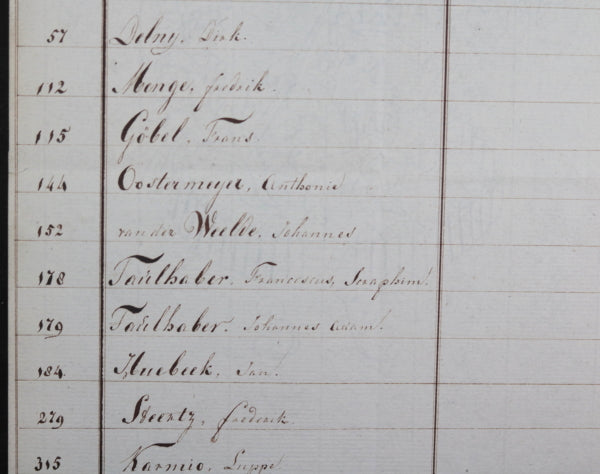 57 Delny, Dirk.
112 Menge, fredrik.
115 Göbel, Frans.
144 Oostermeyer, Anthonie
152 van der Weelde, Johannes
178 Faulhaber, Franciscus, Seraphim
179 Faulhaber, Johannes Adam
184 Huebeek, Jan
279 Steertz, frederik.
315 Karmio, Luppe